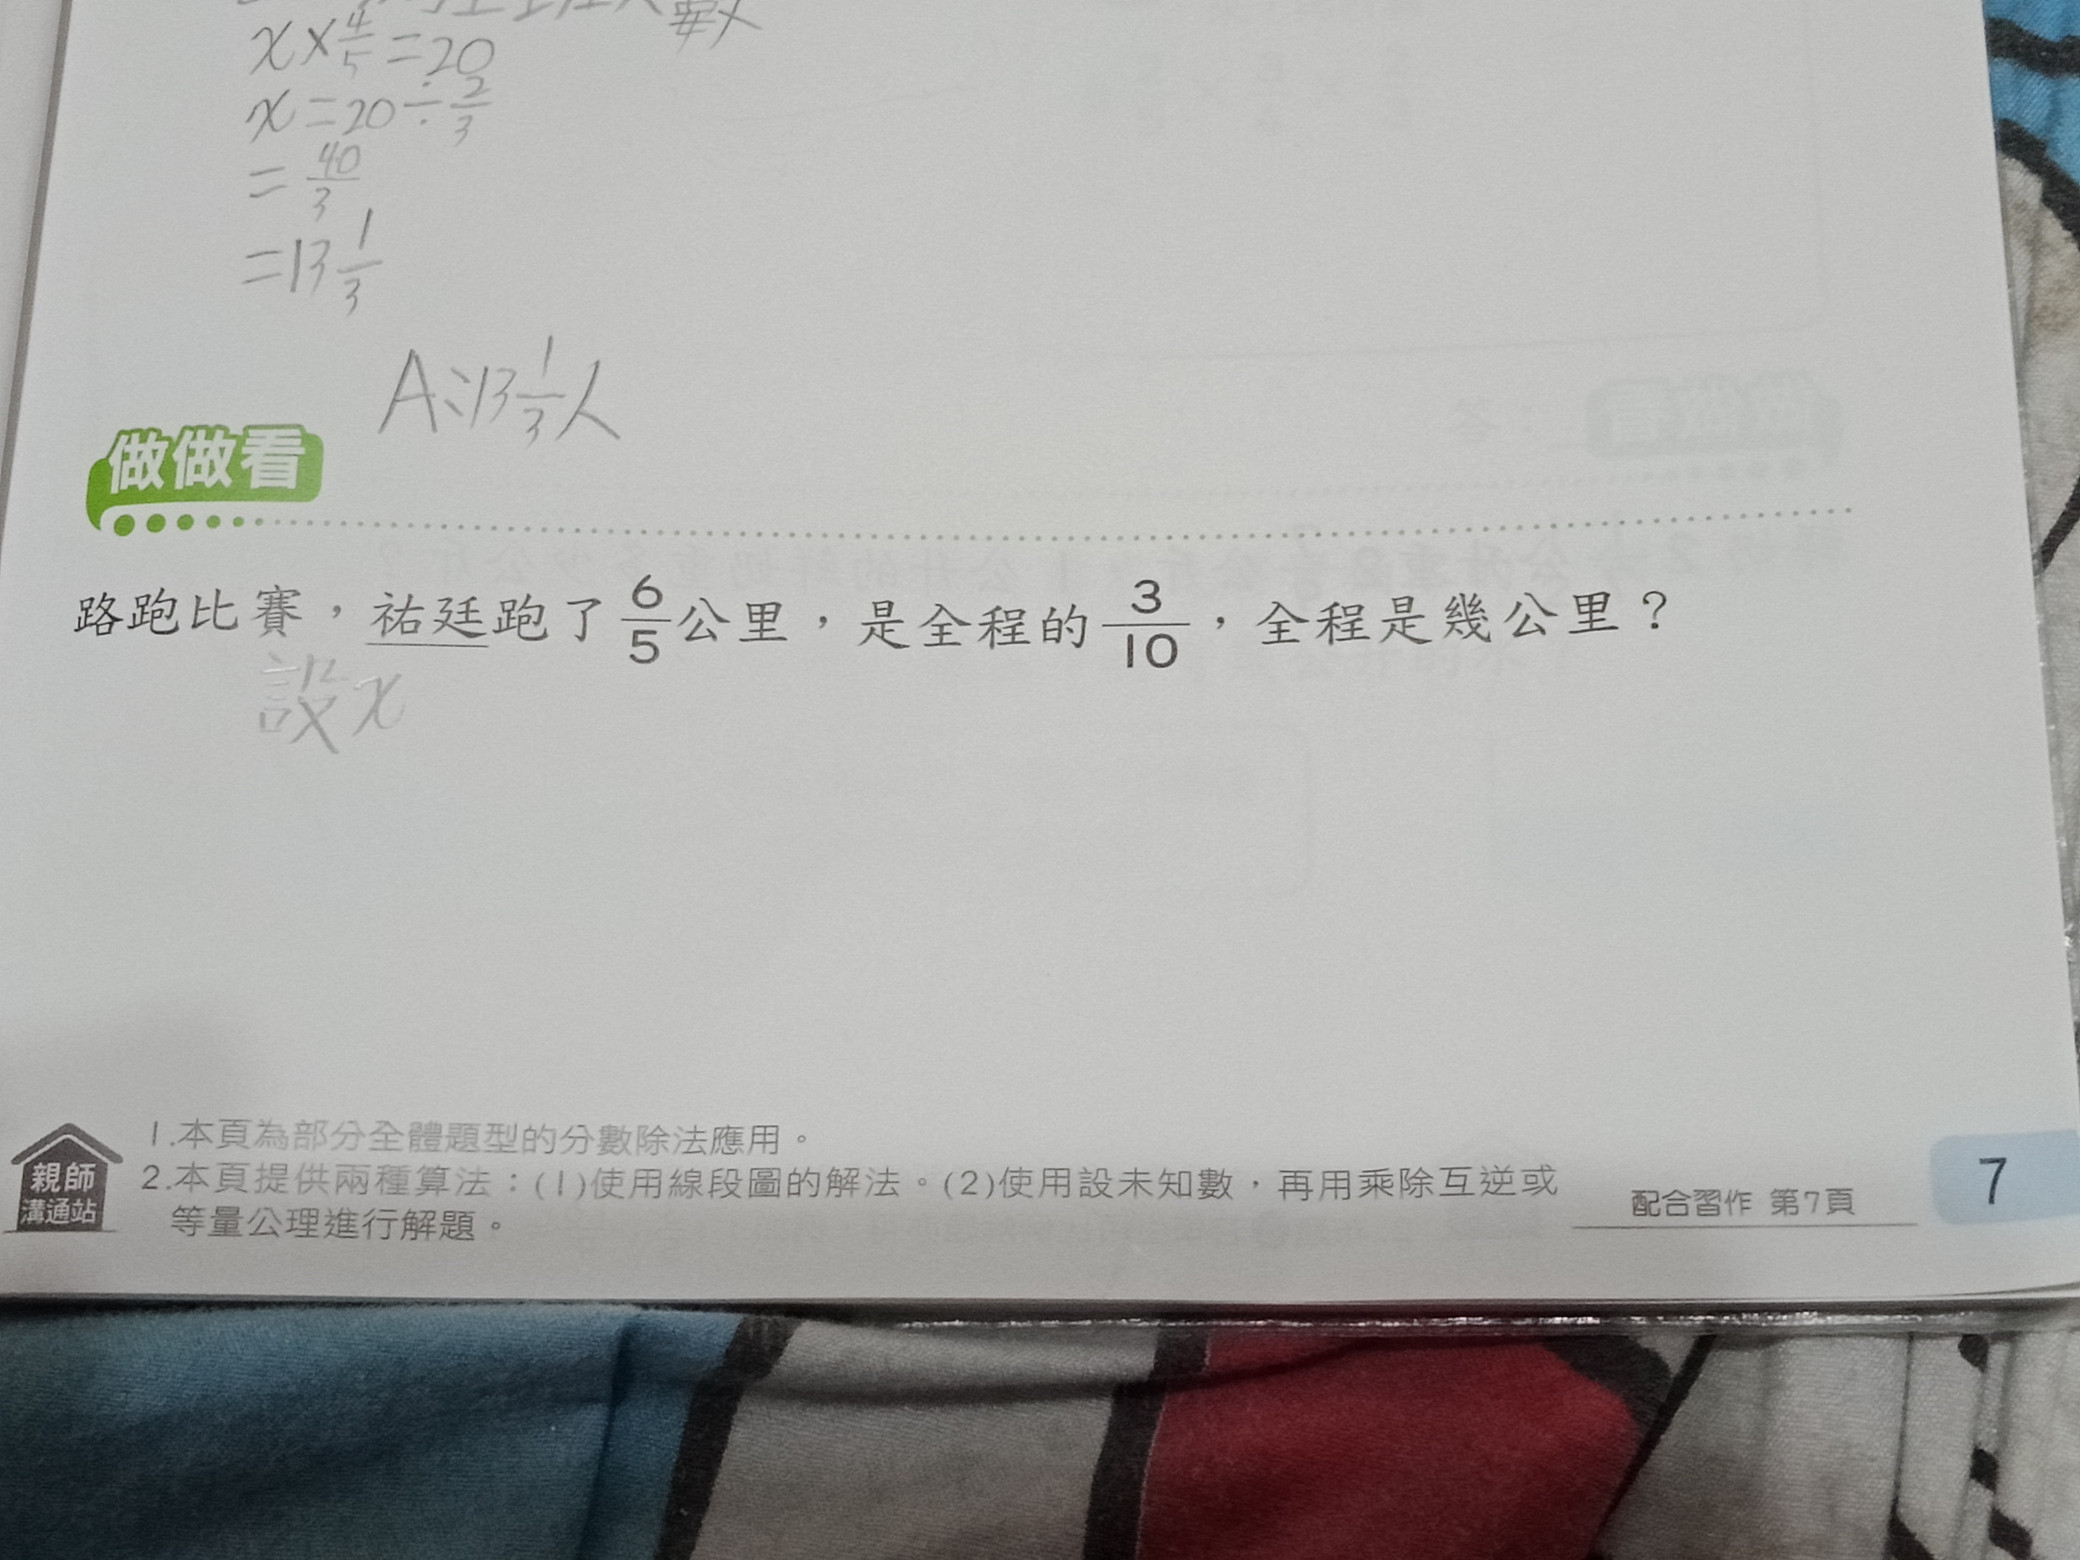 數
x × 4/5 = 20
x = 20 ÷ 2/3
= 40/3
= 13 1/3
A: 13 1/3 人
做做看
路跑比賽，祐廷跑了 6/5 公里，是全程的 3/10，全程是幾公里？
設x
親師
溝通站
1.本頁為部分全體題型的分數除法應用。
2.本頁提供兩種算法：(1)使用線段圖的解法。(2)使用設未知數，再用乘除互逆或
等量公理進行解題。
配合習作 第7頁
7